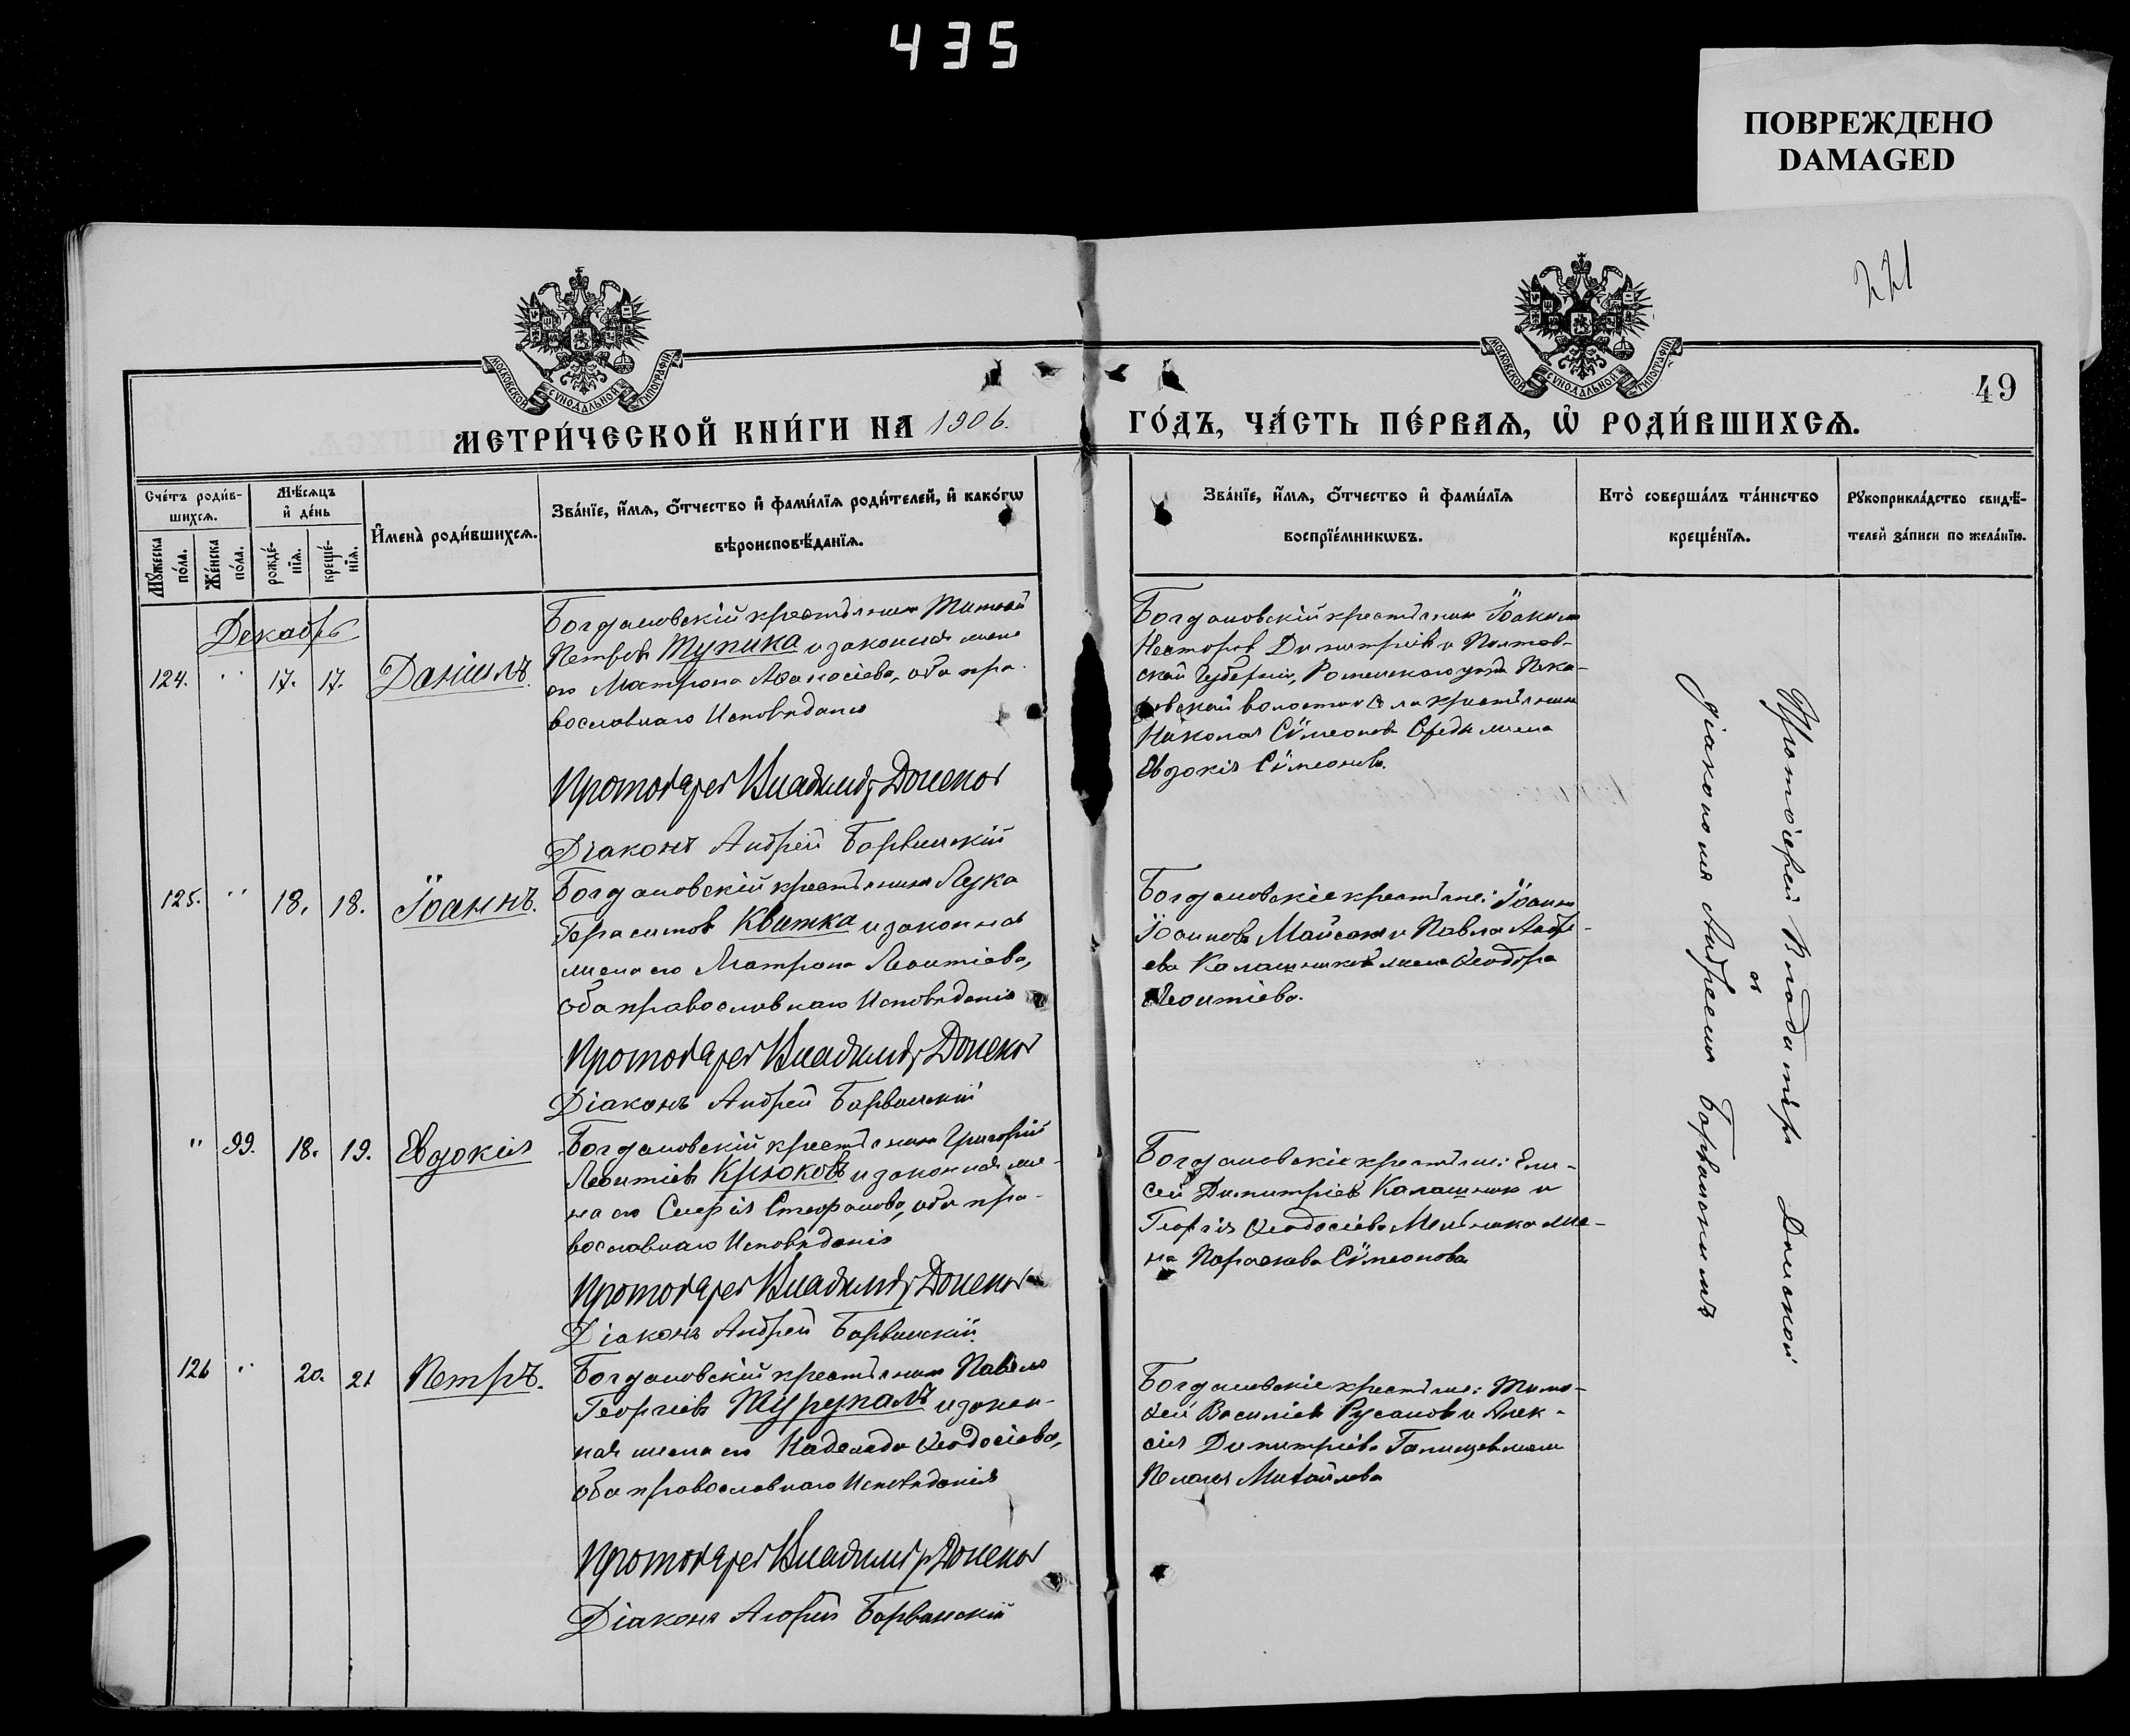 435
ПОВРЕЖДЕНО
DAMAGED
221
МОСКОВСКОЙ СѴНОДАЛЬНОЙ ТИПОГРАФІИ
МОСКОВСКОЙ СѴНОДАЛЬНОЙ ТИПОГРАФІИ
49
МЕТРИ́ЧЕСКОЙ КНИ́ГИ НА 1906.
ГО́ДЪ, ЧА́СТЬ ПЕ́РВАѦ, Ѡ҆ РОДИ́ВШИХСѦ.
Сче́тъ роди́в-
шихсѧ.
Мꙋ́жеска
по́ла.
Же́нска
по́ла.
Мѣ́сѧцъ
и҆ де́нь
рожде́-
нїѧ.
креще́-
нїѧ.
И҆мена̀ роди́вшихсѧ.
Зва́нїе, и҆́мѧ, ѻ҆́тчество и҆ фами́лїѧ роди́телей, и҆ како́гѡ
вѣроисповѣ́данїѧ.
Зва́нїе, и҆́мѧ, ѻ҆́тчество и҆ фами́лїѧ
воспрїе́мникѡвъ.
Кто̀ соверша́лъ та́инство
креще́нїѧ.
Рꙋкоприкла́дство свидѣ́-
телей за́писи по жела́нїю.
Декабрь
124. " 17. 17. Даніилъ.
Богдановскій крестьянин Тимофей
Петров Тупика и законная жена
его Матрона Аѳанасіева, оба пра-
вославнаго Исповѣданія
Протоіерей Владиміръ Донской
Діаконъ Андрей Барвинскій
Богдановскій крестьянин Іоаким
Несторов Димитріев и Полтав-
ской Губерніи, Роменскаго уѣзда
волости села крестьянина
Николая Сѵмеонова жена
Евдокія Сѵмеонова.
125. " 18. 18. Іоаннъ.
Богдановскій крестьянин Лука
Герасимов Квитка и законная
жена его Матрона Леонтіева,
оба православнаго Исповѣданія
Протоіерей Владиміръ Донской
Діаконъ Андрей Барвинскій
Богдановскіе крестьяне: Іоанн
Іоаннов и Павла Андре-
ева Калашникова жена Ѳеодора
Леонтіева.
" 99. 18. 19. Евдокія
Богдановскій крестьянин Григорій
Леонтіев Крюковъ и законная же-
на его Стефанова, оба пра-
вославнаго Исповѣданія
Протоіерей Владиміръ Донской
Діаконъ Андрей Барвинскій
Богдановскіе крестьяне: Ели-
сей Димитріев Калашник и
Георгія Ѳеодосіева Мельника же-
на Параскева Сѵмеонова
126 " 20. 21 Петръ.
Богдановскій крестьянин Павел
Георгіев Турупалъ и закон-
ная жена его Надежда Ѳеодосіева,
оба православнаго Исповѣданія
Протоіерей Владиміръ Донской
Діаконъ Андрей Барвинскій
Богдановскіе крестьяне: Тимо-
ѳей Василіев Русанов и Алек-
сія Димитріева жена
Пелагія Михайлова
Протоіерей Владиміръ Донской
съ
діакономъ Андреемъ Барвинскимъ